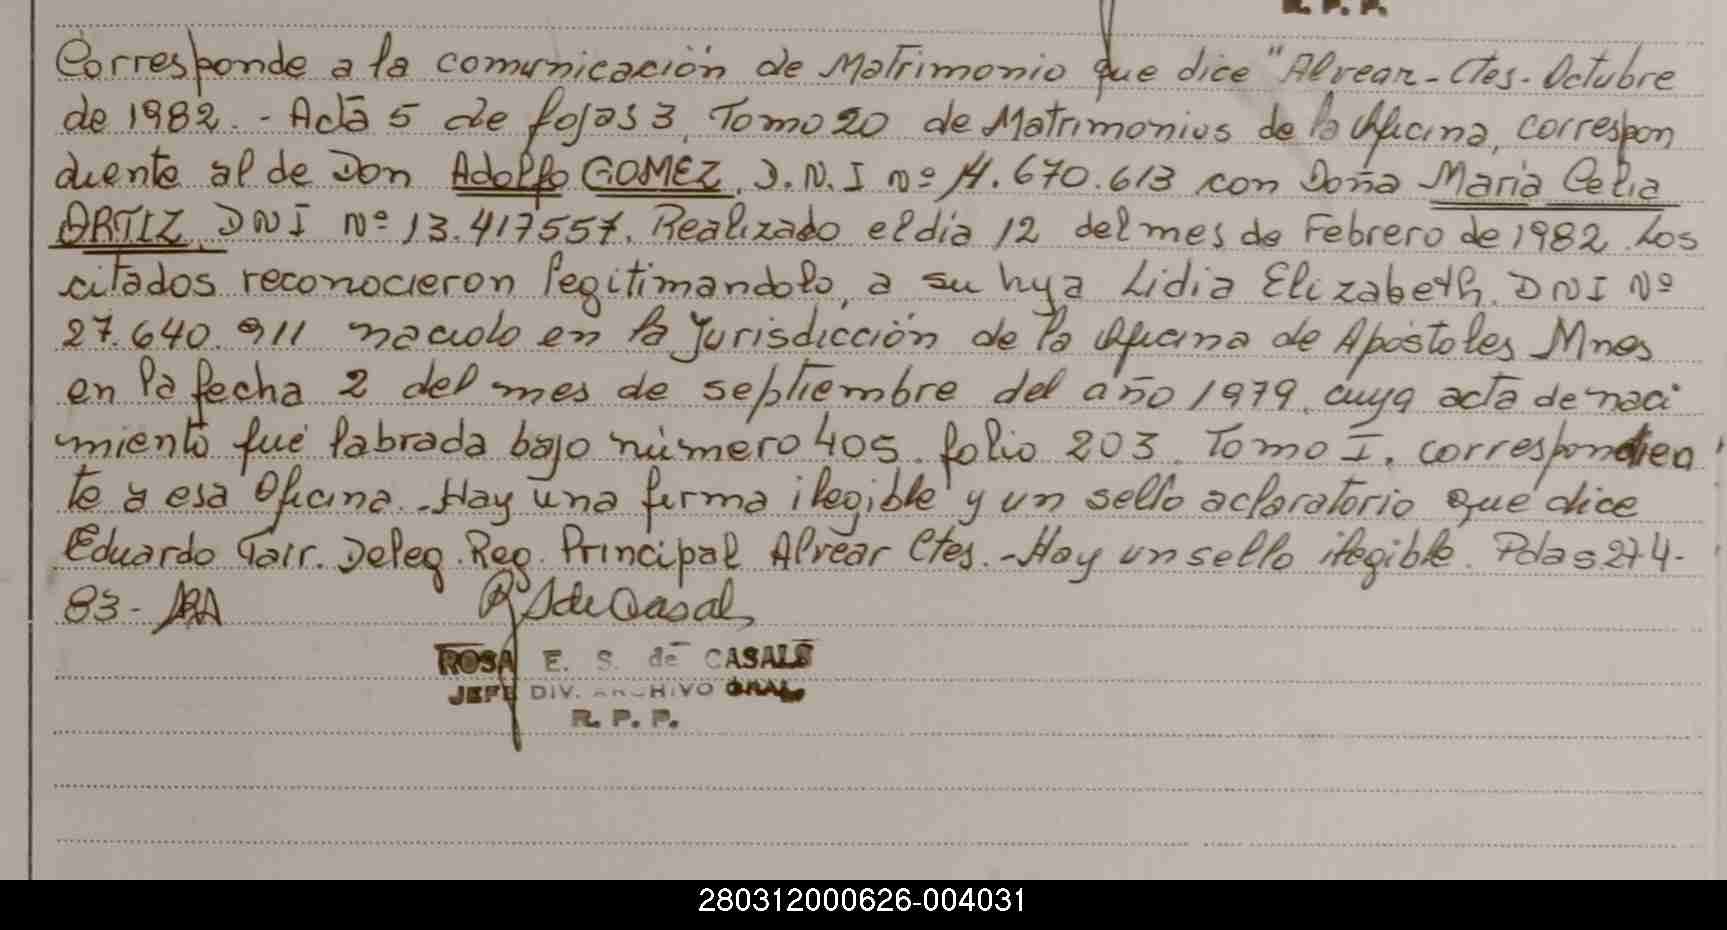 R. P. P.
Corresponde a la comunicación de Matrimonio que dice "Alvear-Ctes-Octubre
de 1982.-Acta 5 de fojas 3, Tomo 20 de Matrimonios de la Oficina, correspon
diente al de Don Adolfo GOMEZ, D.N.I nº 14.670.613 con Doña Maria Celia
ORTIZ, DNI Nº 13.417557, Realizado el dia 12 del mes de Febrero de 1982. Los
citados reconocieron legitimandolo, a su hija Lidia Elizabeth, DNI Nº
27.640.911 nacido en la Jurisdicción de la Oficina de Apóstoles Mnes
en la fecha 2 del mes de septiembre del año 1979, cuya acta de naci
miento fué labrada bajo número 405 folio 203 Tomo I, correspondien
te a esa Oficina.-Hay una firma ilegible y un sello aclaratorio que dice
Eduardo Deleg. Reg. Principal Alvear Ctes.-Hay un sello ilegible. Pdas 27-4-
83-
ROSA E. S. de CASALS
JEFE DIV. ARCHIVO GRAL.
R. P. P.
280312000626-004031